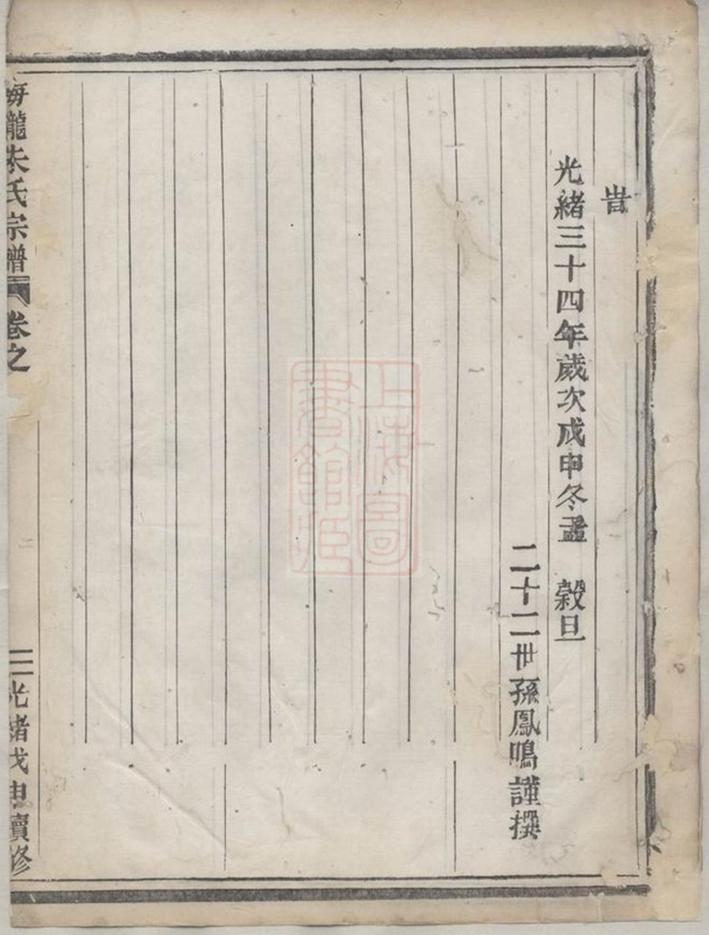 旹
光緒三十四年歲次戊申冬孟 穀旦
二十二世孫鳳鳴謹撰
龍朱氏宗譜 卷之 二 光緒戊申續修
上海圖書館藏